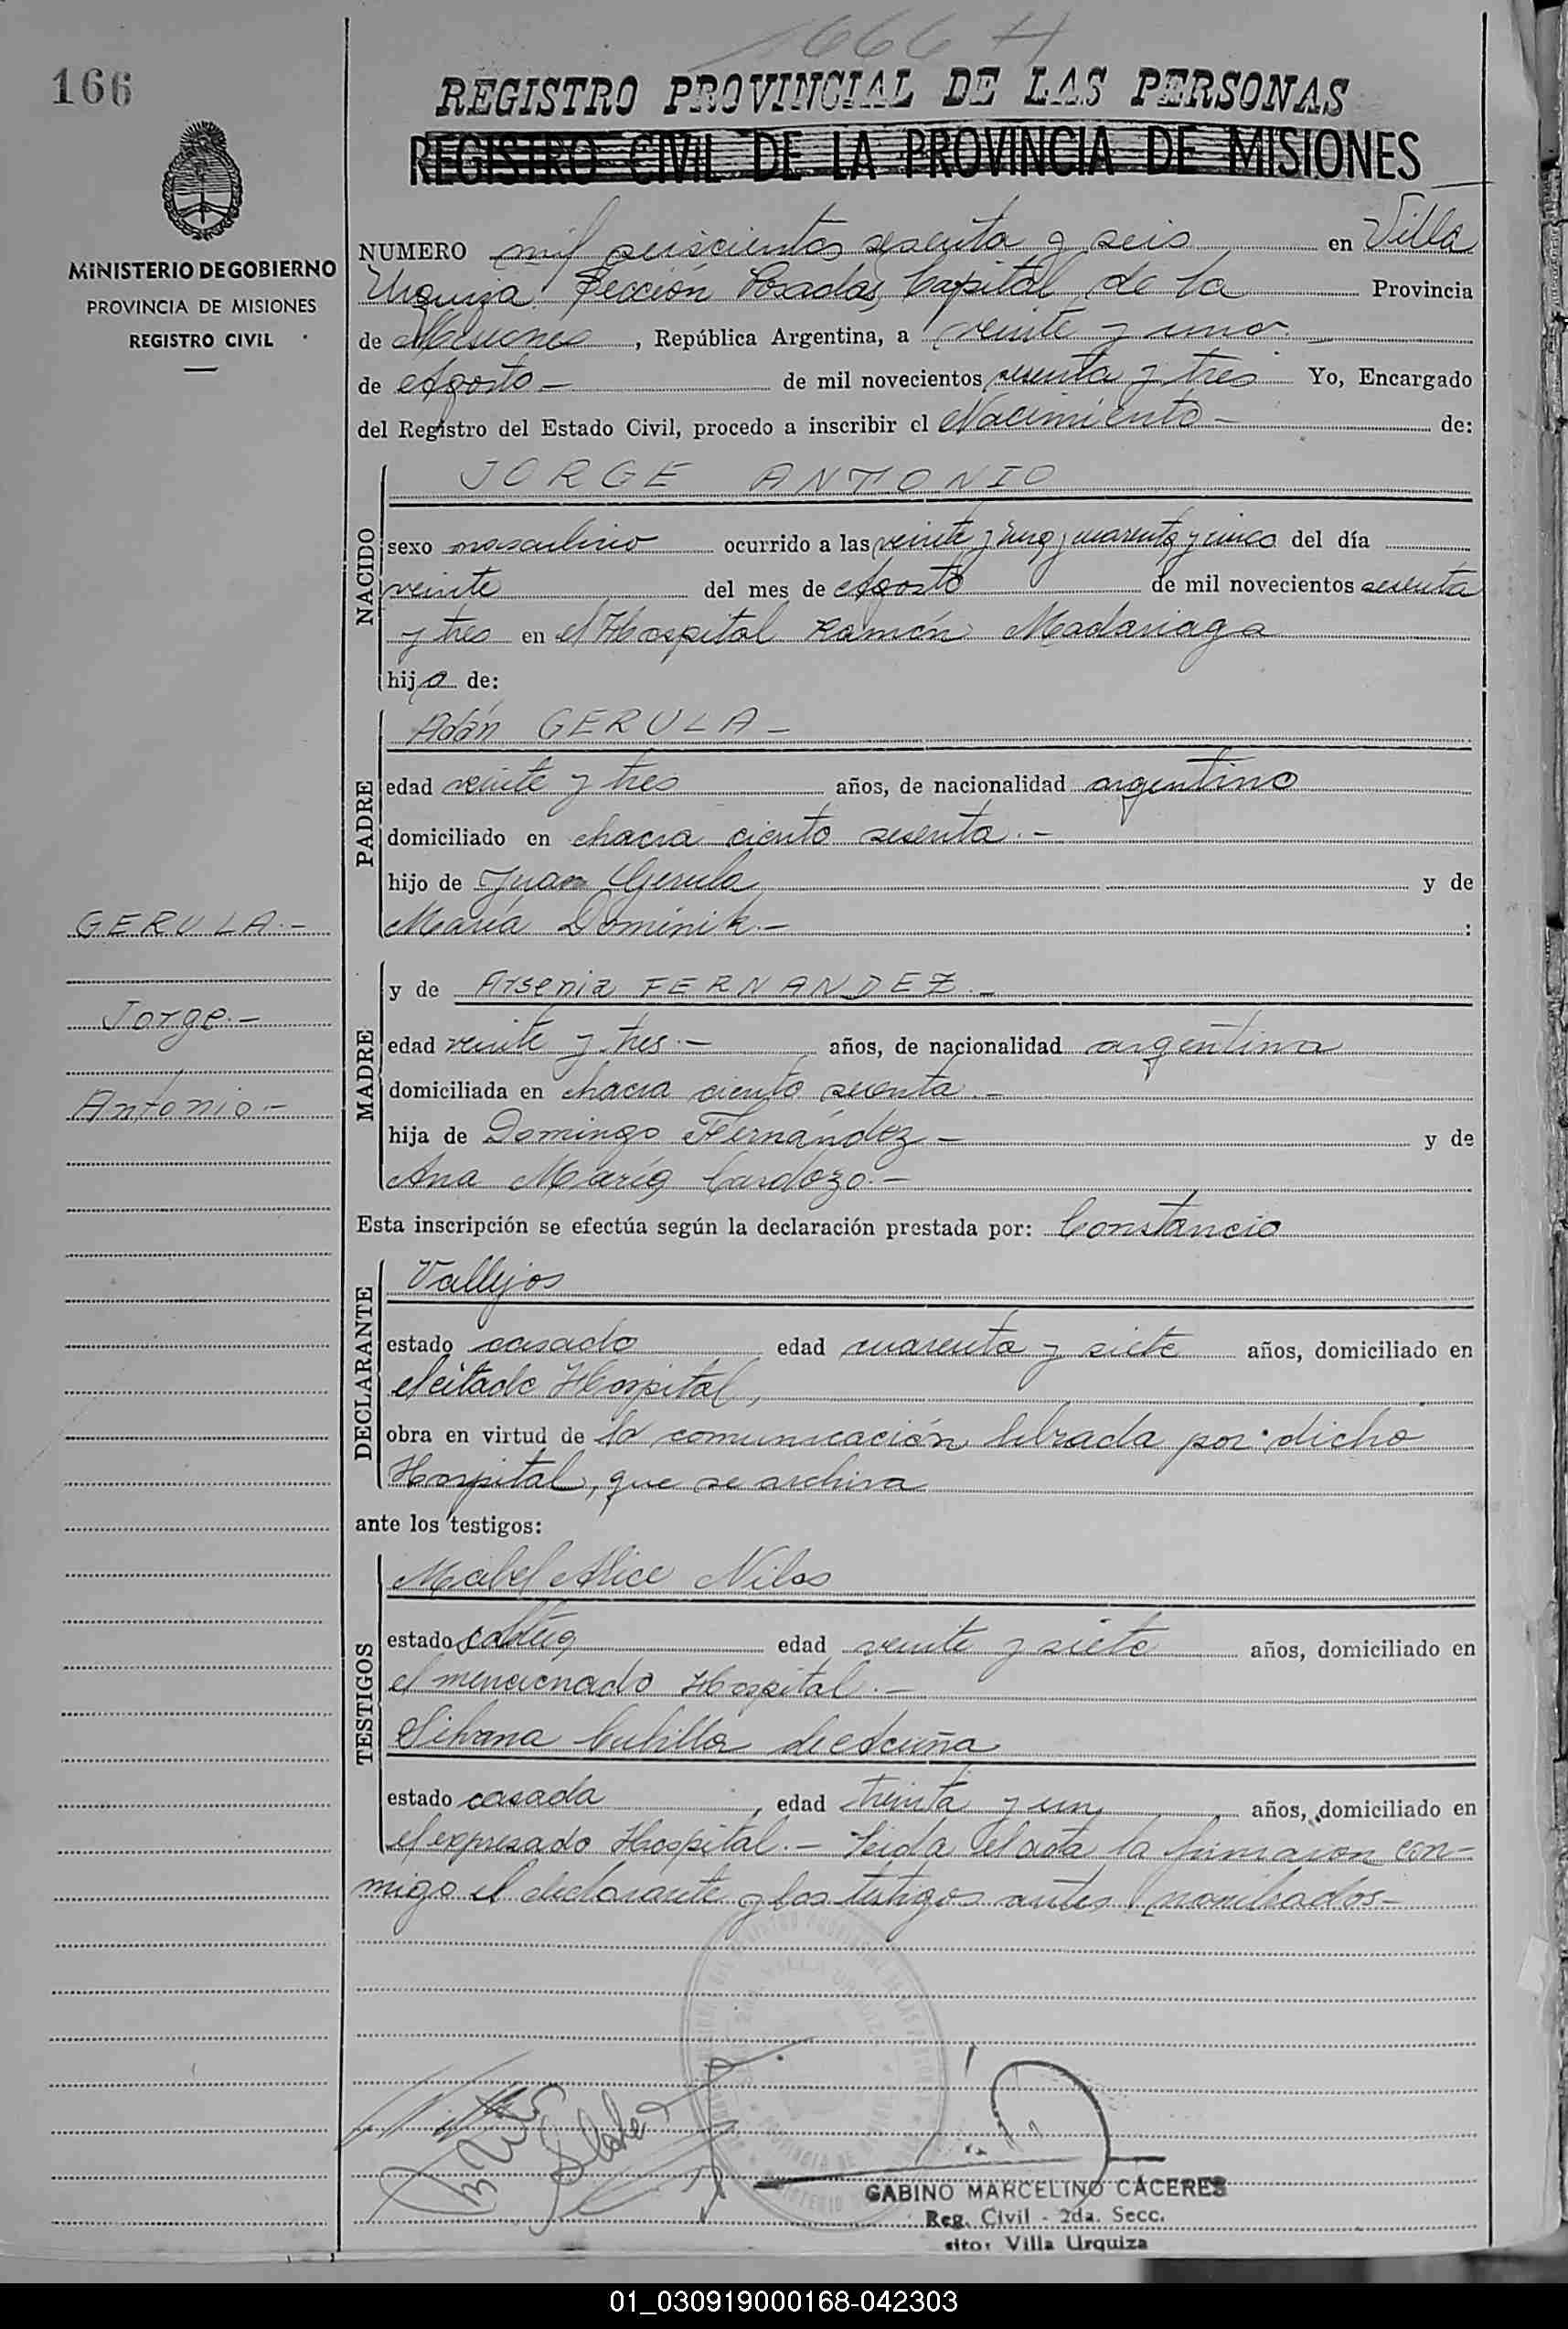 1666 H
166
REGISTRO PROVINCIAL DE LAS PERSONAS
REGISTRO CIVIL DE LA PROVINCIA DE MISIONES
MINISTERIO DE GOBIERNO
PROVINCIA DE MISIONES
REGISTRO CIVIL
NUMERO mil seiscientos sesenta y seis en Villa
Urquiza Sección Posadas, Capital de la Provincia
de Misiones, República Argentina, a veinte y uno.
de Agosto - de mil novecientos sesenta y tres Yo, Encargado
del Registro del Estado Civil, procedo a inscribir el Nacimiento - de:
NACIDO
JORGE ANTONIO
sexo masculino ocurrido a las veinte y una y cuarenta y cinco del día
veinte del mes de Agosto de mil novecientos sesenta
y tres en el Hospital Ramón Madariaga
hijo de:
PADRE
Adán GERULA -
edad veinte y tres años, de nacionalidad argentino
domiciliado en chacra ciento sesenta. -
hijo de Juan Gerula y de
María Dominik. - :
GERULA. -
Jorge. -
Antonio. -
MADRE
y de Arsenia FERNANDEZ. -
edad veinte y tres. - años, de nacionalidad argentina
domiciliada en chacra ciento sesenta. -
hija de Domingo Fernández - y de
Ana María Cardozo. -
Esta inscripción se efectúa según la declaración prestada por: Constancio
DECLARANTE
Vallejos
estado casado edad cuarenta y siete años, domiciliado en
el citado Hospital,
obra en virtud de la comunicación librada por dicho
Hospital, que se archiva
ante los testigos:
TESTIGOS
Mabel Alice Nilos
estado soltera edad veinte y siete años, domiciliado en
el mencionado Hospital. -
Silvana Cubilla de Acuña
estado casada, edad treinta y un, años, domiciliado en
el expresado Hospital. - Leida el acta la firmaron con-
migo el declarante y los testigos antes nombrados -
GABINO MARCELINO CÁCERES
Reg. Civil - 2da. Secc.
sito: Villa Urquiza
01_030919000168-042303